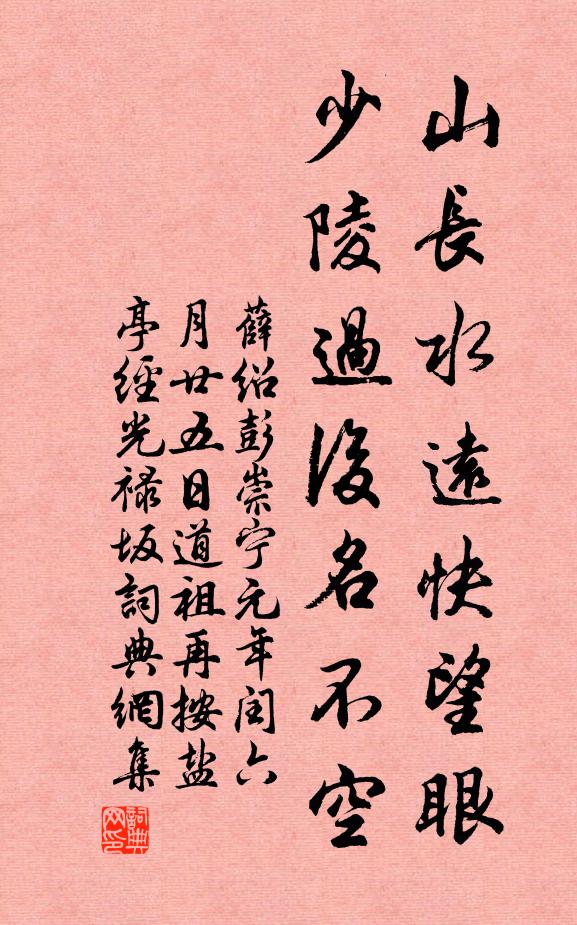 山長水遠快望眼
少陵過後名不空
薛绍彭崇宁元年闰六
月廿五日道祖再按盐
亭經光禄坂詞典網集
詞典网印